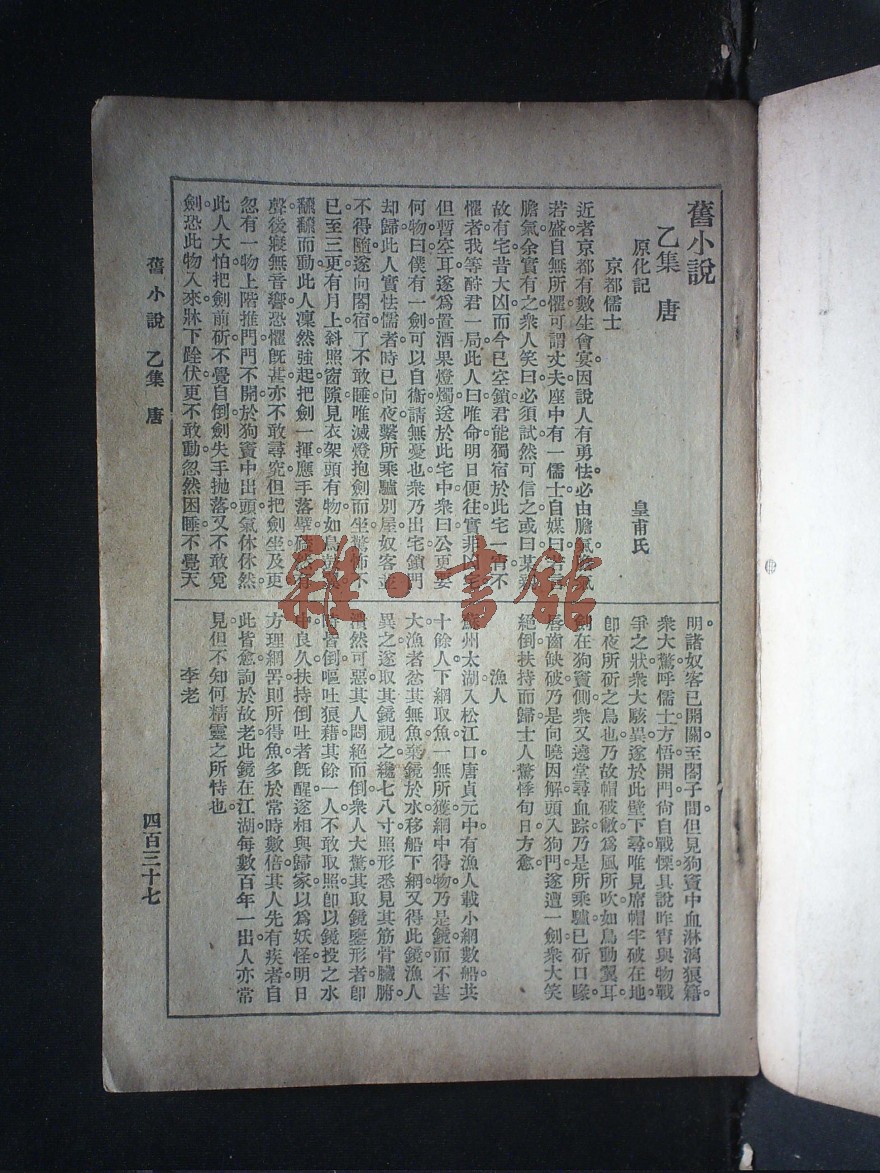 舊小說
乙集　唐
原化記
皇甫氏
京都儒士
近者京都有數生會宴。因說人有勇怯。必由膽氣。膽氣
若盛。自無所懼。可謂丈夫。座中有一儒士自媒曰。若言
膽氣。余實有之。衆人笑曰。必須試。然可信之。或曰。某親
故有宅。昔大凶。而今已空鎖。君能獨宿於此宅。一宵不
懼者。我等酹君一局。此人曰。唯命。明日便往。實非凶宅。
但暫空耳。遂爲置酒果燈燭。送於此宅中。衆曰。公更要
何物。曰。僕有一劍。可以自衛。請無憂也。衆乃出宅。鎖門
却歸。此人實怯懦者。時已向夜。繫所乘驢別屋。奴客並
不得隨。遂向閣宿。了不敢睡。唯滅燈抱劍而坐。驚怖不
已。至三更。有月上。斜照窗隙。見衣架頭有物如鳥鼓翼。
翻翻而動。此人凜然強起。把劍一揮。應手落壁。磕然有
聲。後寢無音響。恐懼旣甚。亦不敢尋究。但把劍坐。及更
忽有一物。上階推門。門不開。於狗竇中出頭。氣休休然。
此人大怕。把劍前斫。不覺自倒。劍失手抛落。又不敢覓
劍。恐此物入來。牀下跧伏。更不敢動。忽然困睡。不覺天
明。諸奴客已開關。至閣子間。但見狗竇中血淋漓狼籍。
衆大驚呼。儒士方悟。開門尙自戰慄。具說昨宵與物戰
爭之狀。衆大駭異。遂於此壁下尋。唯見席帽半破在地。
卽夜所斫之鳥也。乃故帽破敝。爲風所吹。如鳥動翼耳。
劍在狗竇側。衆又遶堂尋血踪。乃是所乘驢。已斫口喙。
唇齒缺破。乃是向曉因解頭入狗門。遂遭一劍。衆大笑
絕倒。扶持而歸。士人驚悸。旬日方愈。
漁人
蘇州太湖入松江口。唐貞元中。有漁人載小網。數船共
十餘人下網取魚。一無所獲。網中得物。乃是鏡而不甚
大。漁者忿其無魚。棄鏡於水。移船下網。又得此鏡。漁人
異之。遂取其鏡視之。纔七八寸。照形悉見其筋骨臟腑。
潰然可惡。其人悶絕而倒。衆人大驚。其取鏡鑒形者。卽
時皆倒。嘔吐狼藉。其餘一人。不敢取照。卽以鏡投之水
中。良久。扶持倒吐者旣醒。遂相與歸家。以爲妖怪。明日
方理網罟。則所得魚多於常時數倍。其人先有疾者。自
此皆愈。詢於故老。此鏡在江湖。每數百年一出。人亦常
見。但不知何精靈之所恃也。
李老
舊小說　乙集　唐
四百三十七
雜·書館